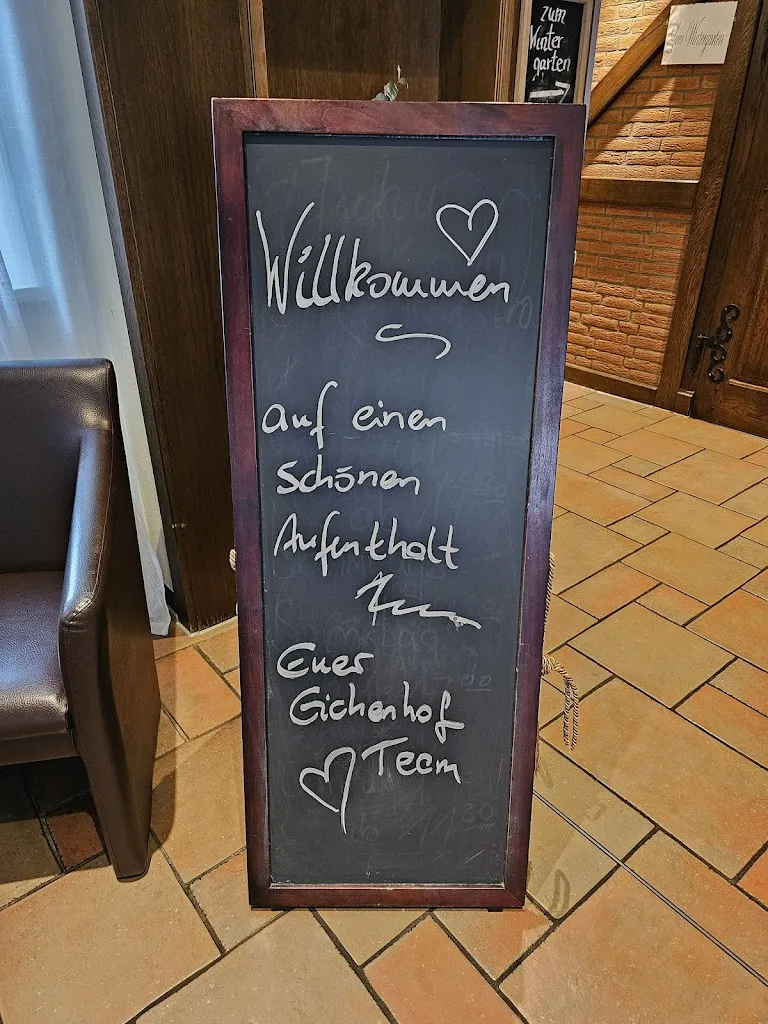 zum
Winter
garten
Zum Wintergarten
Willkommen
auf einen
schönen
Aufenthalt
Euer
Eichenhof
Team